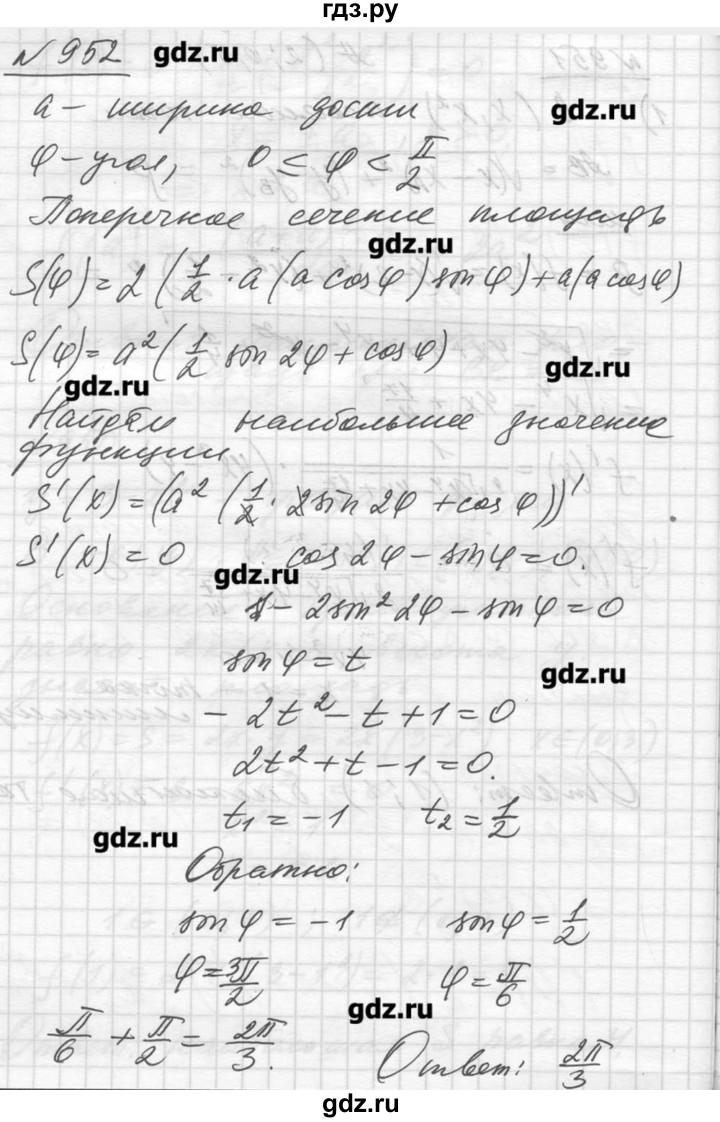 гдз.ру
№952 gdz.ru
a – ширина доски gdz.ru
φ – угол, 0 ≤ φ < π/2
Поперечное сечение площадь
gdz.ru
S(φ) = 2 (1/2 · a (a cosφ) sinφ) + a(a cosφ)
S(φ) = a² (1/2 sin 2φ + cosφ)
gdz.ru gdz.ru
Найдем наибольшее значение
функции
S'(x) = (a² (1/2 · 2sin 2φ + cosφ))'
S'(x) = 0 cos 2φ – sinφ = 0.
gdz.ru
1 – 2sin² 2φ – sinφ = 0
sinφ = t gdz.ru
– 2t² – t + 1 = 0
2t² + t – 1 = 0.
t₁ = –1 t₂ = 1/2
gdz.ru
Обратно:
sinφ = –1 sinφ = 1/2
φ = 3π/2 φ = π/6
gdz.ru
π/6 + π/2 = 2π/3. Ответ: 2π/3
gdz.ru